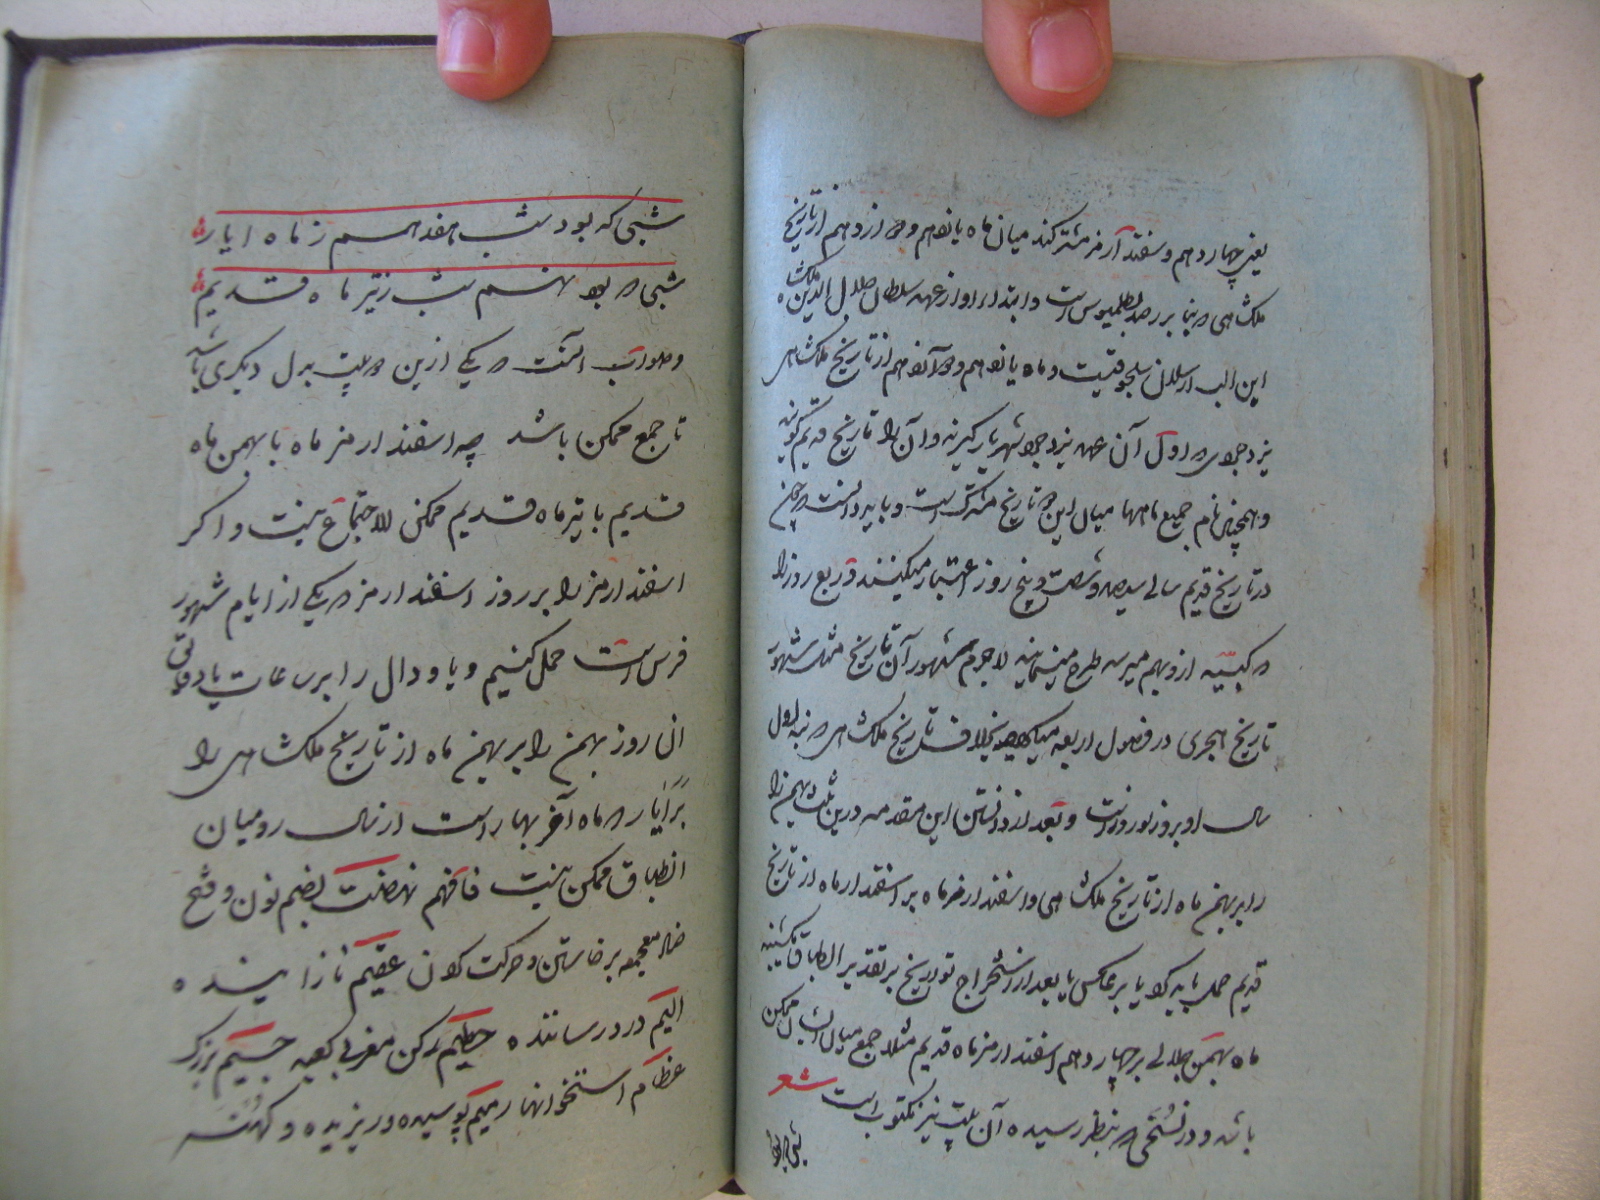 یعنی چهاردهم و سفندآرمز مشترکند میان ماه یازدهم و دوازدهم از تاریخ
ملکشاهی که بنا بر رصد بطلمیوس است و ابتداء او از عهد سلطان جلال الدین ملکشاه
ابن الب ارسلان سلجوقیست و ماه یازدهم و دوازدهم از تاریخ ملکشاهی
یزدجردی که اول آن عهد یزدجرد شهریار گیرند و آن را تاریخ قدیم گویند
و همچنان نام جمیع ماهها میان این دو تاریخ مشترک است و باید دانست که چون
در تاریخ قدیم سالی سیصد و شصت و پنج روز اعتبار میکنند و ربع روز را
که کبیسه ازو بهم میرسد طرح مینمایند لاجرم شهور آن تاریخ مثل شهور
تاریخ هجری در فصول اربعه میکردد بخلاف تاریخ ملکشاهی که همیشه اول
سال او بروز نوروز است و بعد از دانستن این مقدمه درین بیت بهمن را
را بر بهمن ماه از تاریخ ملکشاهی و اسفندارمز ماه بر اسفندارماه از تاریخ
قدیم حمل باید کرد یا بر عکس تا بعد از استخراج تواریخ بر تقدیر انطباق
ماه بهمن جلالی بر چهاردهم اسفندارمز ماه قدیم مثلا جمع میان ایشان ممکن
باشد و در نسخی که بنظر رسیده آن بیت نیز مکتوب است شعر
شبی که بود
شبی که بود شب هفدهم ز ماه ایار
شبی که بود نهم شب ز تیر ماه قدیم
و صواب آنست که یکی ازین دو بیت بدل دیگری باشد
تا جمع ممکن باشد چه اسفندارمز ماه با بهمن ماه
قدیم با تیر ماه قدیم ممکن الاجتماع نیست و اگر
اسفندارمز را بر روز اسفندارمز که یکی از ایام شهور
فرس است حمل کنیم و یا و دال را بر ساعات یا دقایق
ان روز بهمن را بر بهمن ماه از تاریخ ملکشاهی را
بر ایار که ماه آخر بهار است از سال رومیان
انطباق ممکن نیست فافهم نهضت بضم نون و فتح
ضاد معجمه برخاستن و حرکت کردن عقیم نازاینده
الیم درد رساننده حطیم رکن مغربی کعبه جسیم بزرگ
عظام استخوانها رمیم پوسیده و ریزیده و کهنه